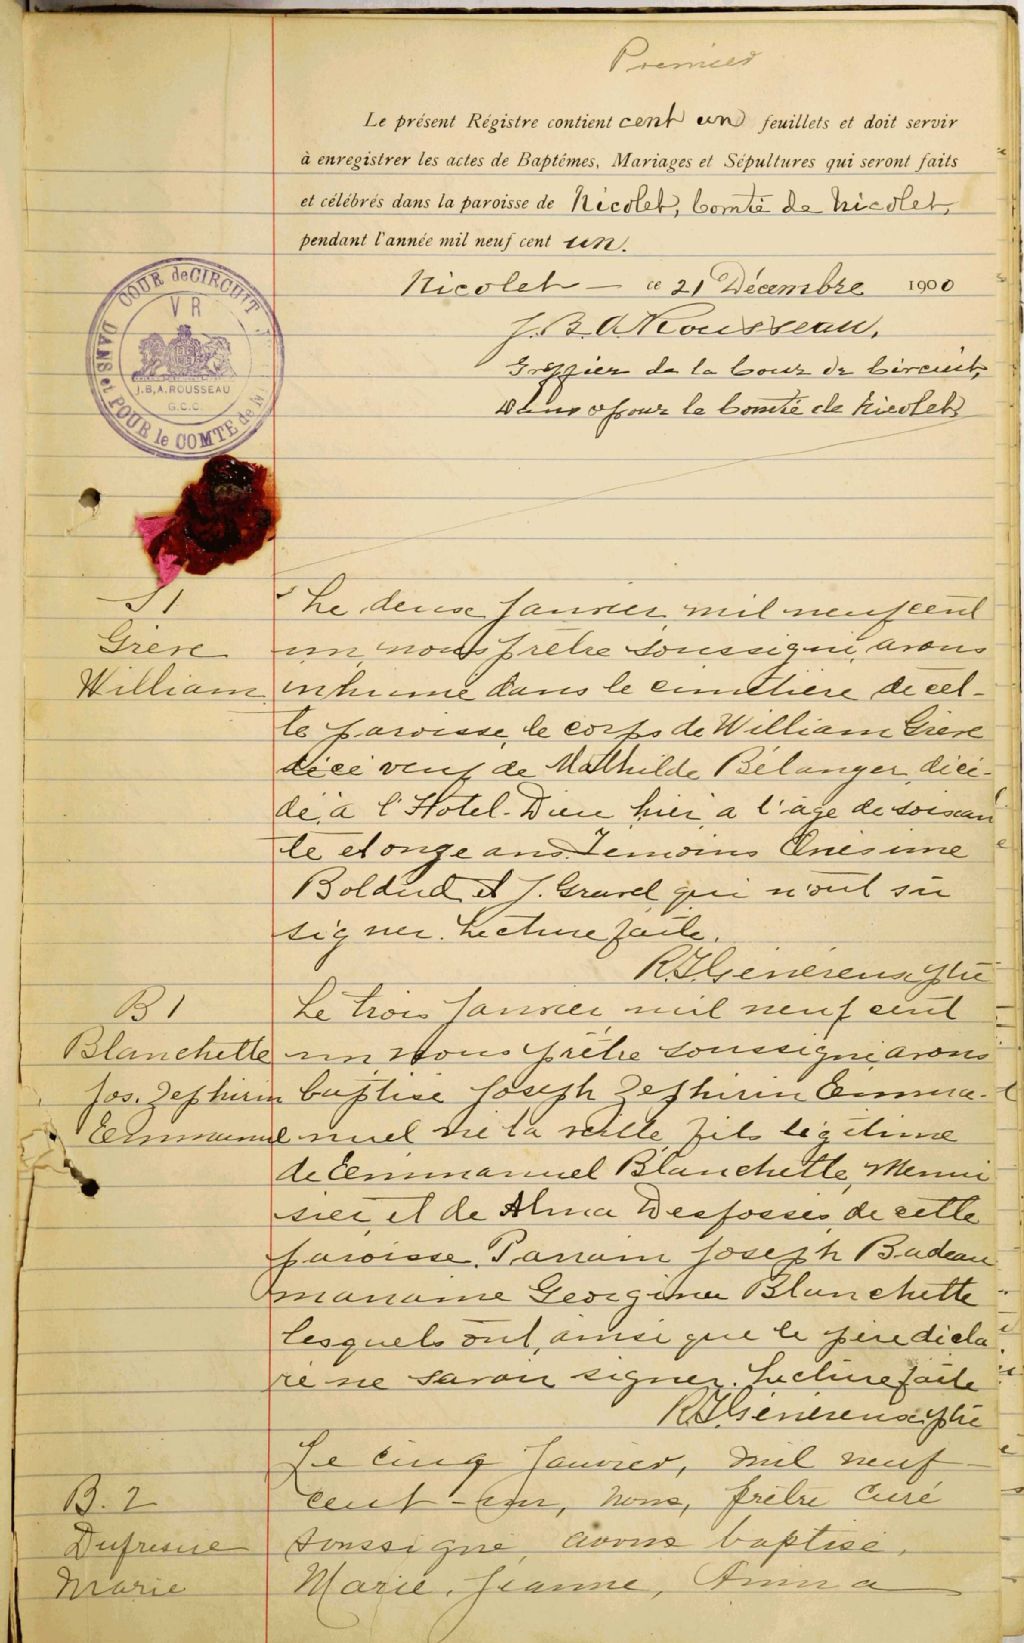 Premier
Le présent Régistre contient cent un feuillets et doit servir
à enregistrer les actes de Baptêmes, Mariages et Sépultures qui seront faits
et célébrés dans la paroisse de Nicolet, Comté de Nicolet,
pendant l'année mil neuf cent un.
Nicolet — ce 21 Décembre 1900
J. B. A. Rousseau,
Greffier de la Cour de Circuit,
dans et pour le Comté de Nicolet
COUR de CIRCUIT
DANS et POUR le COMTÉ de N
V R
J.B.A. ROUSSEAU
G.C.C.
S 1
Grève
William
Le deux Janvier mil neuf cent
un nous prêtre soussigné, avons
inhumé dans le cimetière de cet-
te paroisse, le corps de William Grève
veuf de Mathilde Bélanger décé-
dé, à l'Hotel-Dieu hier, a l'âge de soixan
te et onze ans. Témoins Onésime
Bolduc et J. Gravel qui n'ont su
signer. Lecture faite.
R.J. Généreux ptre
B 1
Blanchette
Jos. Zephirin
Emmanuel
Le trois Janvier mil neuf cent
un nous prêtre soussigné, avons
baptisé Joseph Zephirin Emma-
nuel né la veille fils légitime
de Emmanuel Blanchette, Menui
sier, et de Alma Desfossés, de cette
paroisse. Parrain Joseph Badeau
marraine Georgina Blanchette
lesquels ont, ainsi que le père décla
ré ne savoir signer. Lecture faite
R.J. Généreux ptre
B. 2
Dufresne
Marie
Le cinq Janvier, mil neuf-
cent-un, nous, prêtre curé
soussigné, avons baptisé,
Marie, Jeanne, Anna